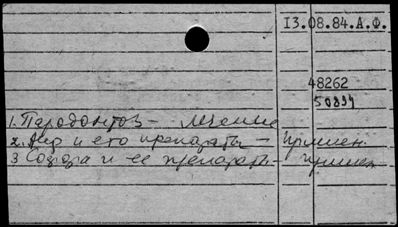 13.08.84.А.Ф.
48262
50894
1. Пародонтоз – лечение
2. Мед и его препараты – примен.
3 Сода и ее препарат. – примен.